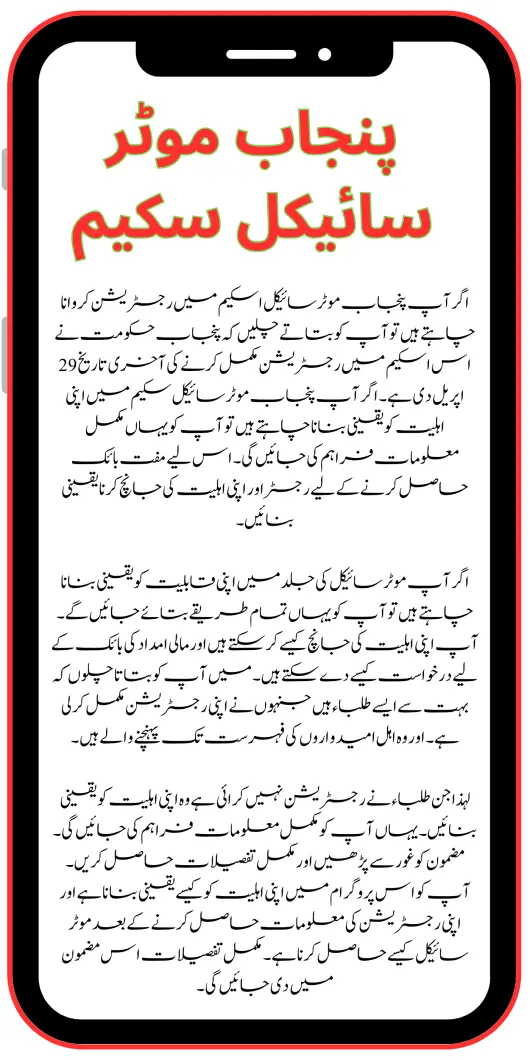 پنجاب موٹر
سائیکل سکیم
اگر آپ پنجاب موٹر سائیکل اسکیم میں رجسٹریشن کروانا
چاہتے ہیں تو آپ کو بتاتے چلیں کہ پنجاب حکومت نے
اس اسکیم میں رجسٹریشن مکمل کرنے کی آخری تاریخ 29
اپریل دی ہے۔ اگر آپ پنجاب موٹر سائیکل سکیم میں اپنی
اہلیت کو یقینی بنانا چاہتے ہیں تو آپ کو یہاں مکمل
معلومات فراہم کی جائیں گی۔ اس لیے مفت بائک
حاصل کرنے کے لیے رجسٹر اور اپنی اہلیت کی جانچ کرنا یقینی
بنائیں۔
اگر آپ موٹر سائیکل کی جلد میں اپنی قابلیت کو یقینی بنانا
چاہتے ہیں تو آپ کو یہاں تمام طریقے بتائے جائیں گے۔
آپ اپنی اہلیت کی جانچ کیسے کر سکتے ہیں اور مالی امداد کی بائک کے
لیے درخواست کیسے دے سکتے ہیں۔ میں آپ کو بتاتا چلوں کہ
بہت سے ایسے طلباء ہیں جنہوں نے اپنی رجسٹریشن مکمل کر لی
ہے۔ اور وہ اہل امیدواروں کی فہرست تک پہنچنے والے ہیں۔
لہذا جن طلباء نے رجسٹریشن نہیں کرائی ہے وہ اپنی اہلیت کو یقینی
بنائیں۔ یہاں آپ کو مکمل معلومات فراہم کی جائیں گی۔
مضمون کو غور سے پڑھیں اور مکمل تفصیلات حاصل کریں۔
آپ کو اس پروگرام میں اپنی اہلیت کو کیسے یقینی بنانا ہے اور
اپنی رجسٹریشن کی معلومات حاصل کرنے کے بعد موٹر
سائیکل کیسے حاصل کرنا ہے۔ مکمل تفصیلات اس مضمون
میں دی جائیں گی۔